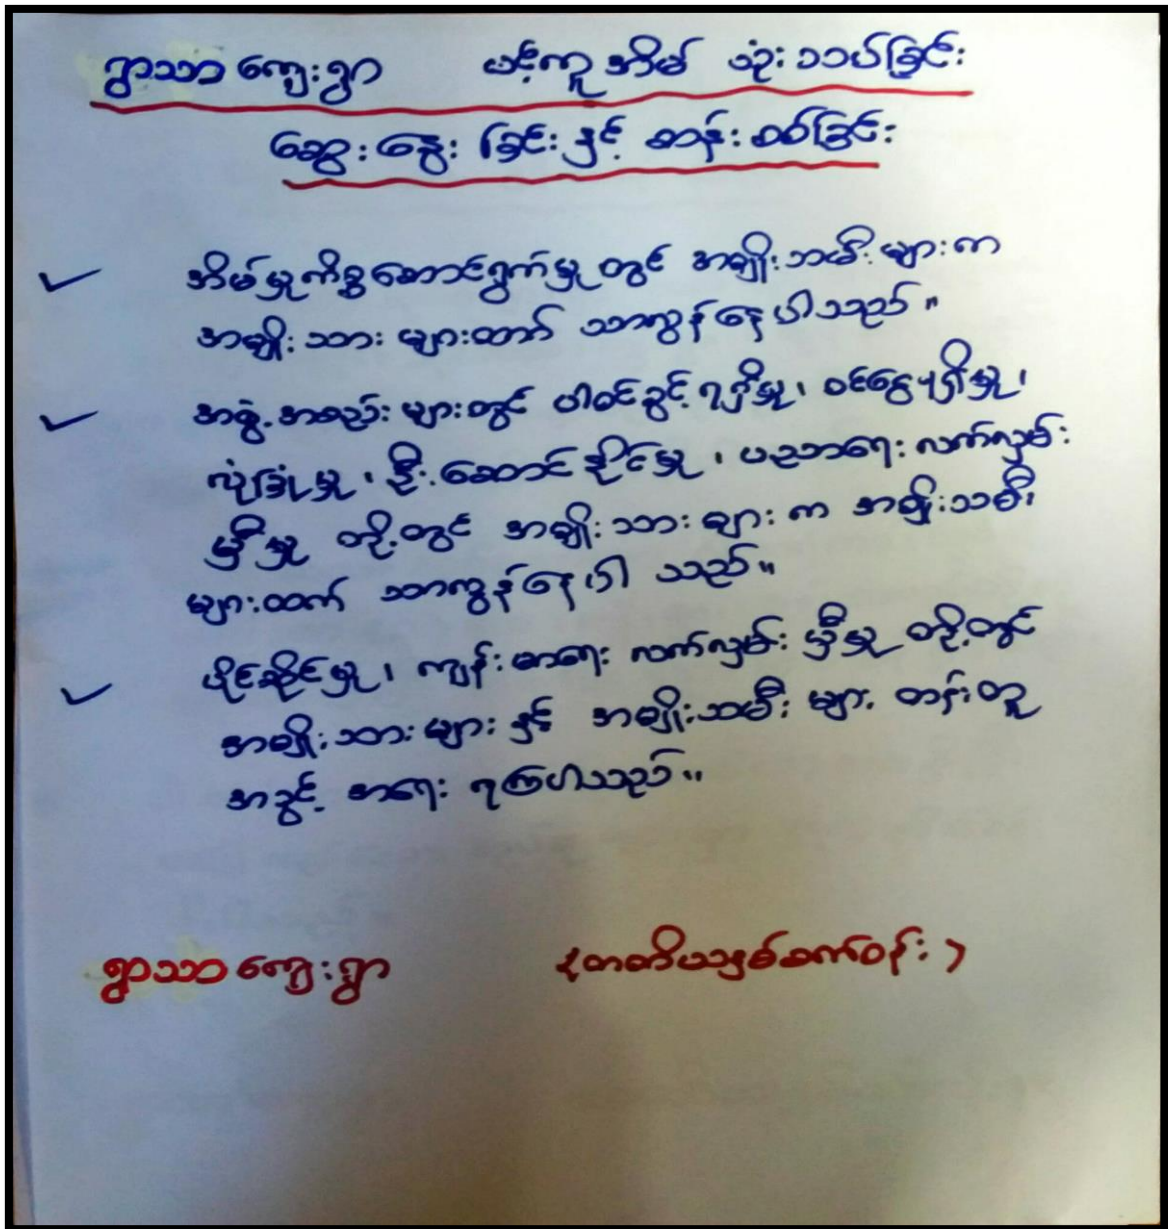 ရွာသာကျေးရွာ ပင့်ကူအိမ် သုံးသပ်ခြင်း
ဆွေးနွေးခြင်းနှင့် ဆန်းစစ်ခြင်း
အိမ်မှုကိစ္စဆောင်ရွက်မှုတွင် အမျိုးသမီးများက
အမျိုးသားများထက် သာလွန်နေပါသည်။
အဖွဲ့အစည်းများတွင် ပါဝင်ခွင့်ရရှိမှု၊ ဝင်ငွေရရှိမှု၊
လုံခြုံမှု၊ ဦးဆောင်နိုင်မှု၊ ပညာရေးလက်လှမ်း
မှီမှု တို့တွင် အမျိုးသားများက အမျိုးသမီး
များထက် သာလွန်နေပါသည်။
ပိုင်ဆိုင်မှု၊ ကျန်းမာရေးလက်လှမ်းမှီမှု တို့တွင်
အမျိုးသားများနှင့် အမျိုးသမီးများ တန်းတူ
အခွင့်အရေး ရကြပါသည်။
ရွာသာကျေးရွာ (တတိယနှစ်စက်ဝန်း)